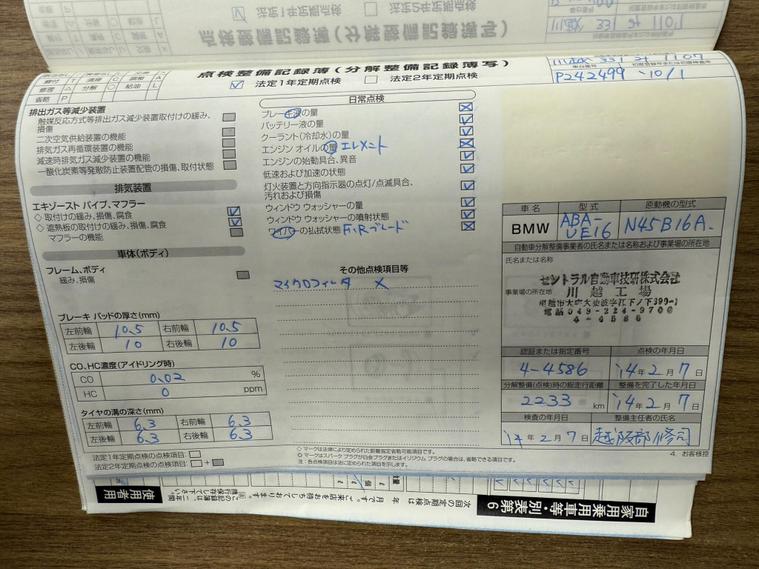 点検整備記録簿(分解整備記録簿写)
法定1年定期点検
法定2年定期点検
P242499
10/1
省略 P
排出ガス等減少装置
触媒反応方式等排出ガス減少装置取付けの緩み、
損傷
二次空気供給装置の機能
排気ガス再循環装置の機能
減速時排気ガス減少装置の機能
一酸化炭素等発散防止装置配管の損傷、取付状態
排気装置
エキゾースト パイプ、マフラー
◇ 取付けの緩み、損傷、腐食
◇ 遮熱板の取付けの緩み、損傷、腐食
マフラーの機能
車体(ボディ)
フレーム、ボディ
緩み、損傷
ブレーキ パッドの厚さ(mm)
左前輪 10.5 右前輪 10.5
左後輪 10 右後輪 10
CO、HC濃度(アイドリング時)
CO 0.02 %
HC 0 ppm
タイヤの溝の深さ(mm)
左前輪 6.3 右前輪 6.3
左後輪 6.3 右後輪 6.3
法定1年定期点検の点検項目:
法定2年定期点検の点検項目: +
日常点検
ブレーキ液の量
バッテリー液の量
クーラント(冷却水)の量
エンジン オイルの量 エレメント
エンジンの始動具合、異音
低速および加速の状態
灯火装置と方向指示器の点灯/点滅具合、
汚れおよび損傷
ウィンドウ ウォッシャーの量
ウィンドウ ウォッシャーの噴射状態
ワイパーの払拭状態 F,Rブレード
その他点検項目等
マイクロフィルタ ×
車名 型式 原動機の型式
BMW ABA-UE16 N45B16A
自動車分解整備事業者の氏名または名称および事業場の所在地
氏名または名称
セントラル自動車技研株式会社
事業場の所在地
川越工場
電話 049-224-9706
4-4586
認証または指定番号 点検の年月日
4-4586 '14年2月7日
分解整備(点検)時の指定走行距離 整備を完了した年月日
2233 km '14年2月7日
検査の年月日 整備主任者の氏名
'14年2月7日 越阪部修司
4. お客様控
◇ マークは法律により定められた距離指定省略可能項目です。
注:各点検項目は法に定められた項目を示します。
自家用乗用車等・別表第6
使用者用
次回の定期点検は 年 月です。ご来店をお待ちしております。